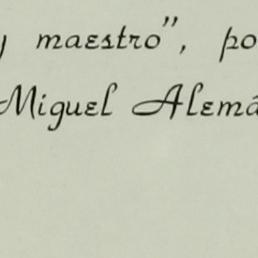 y maestro", po
Miguel Alemá